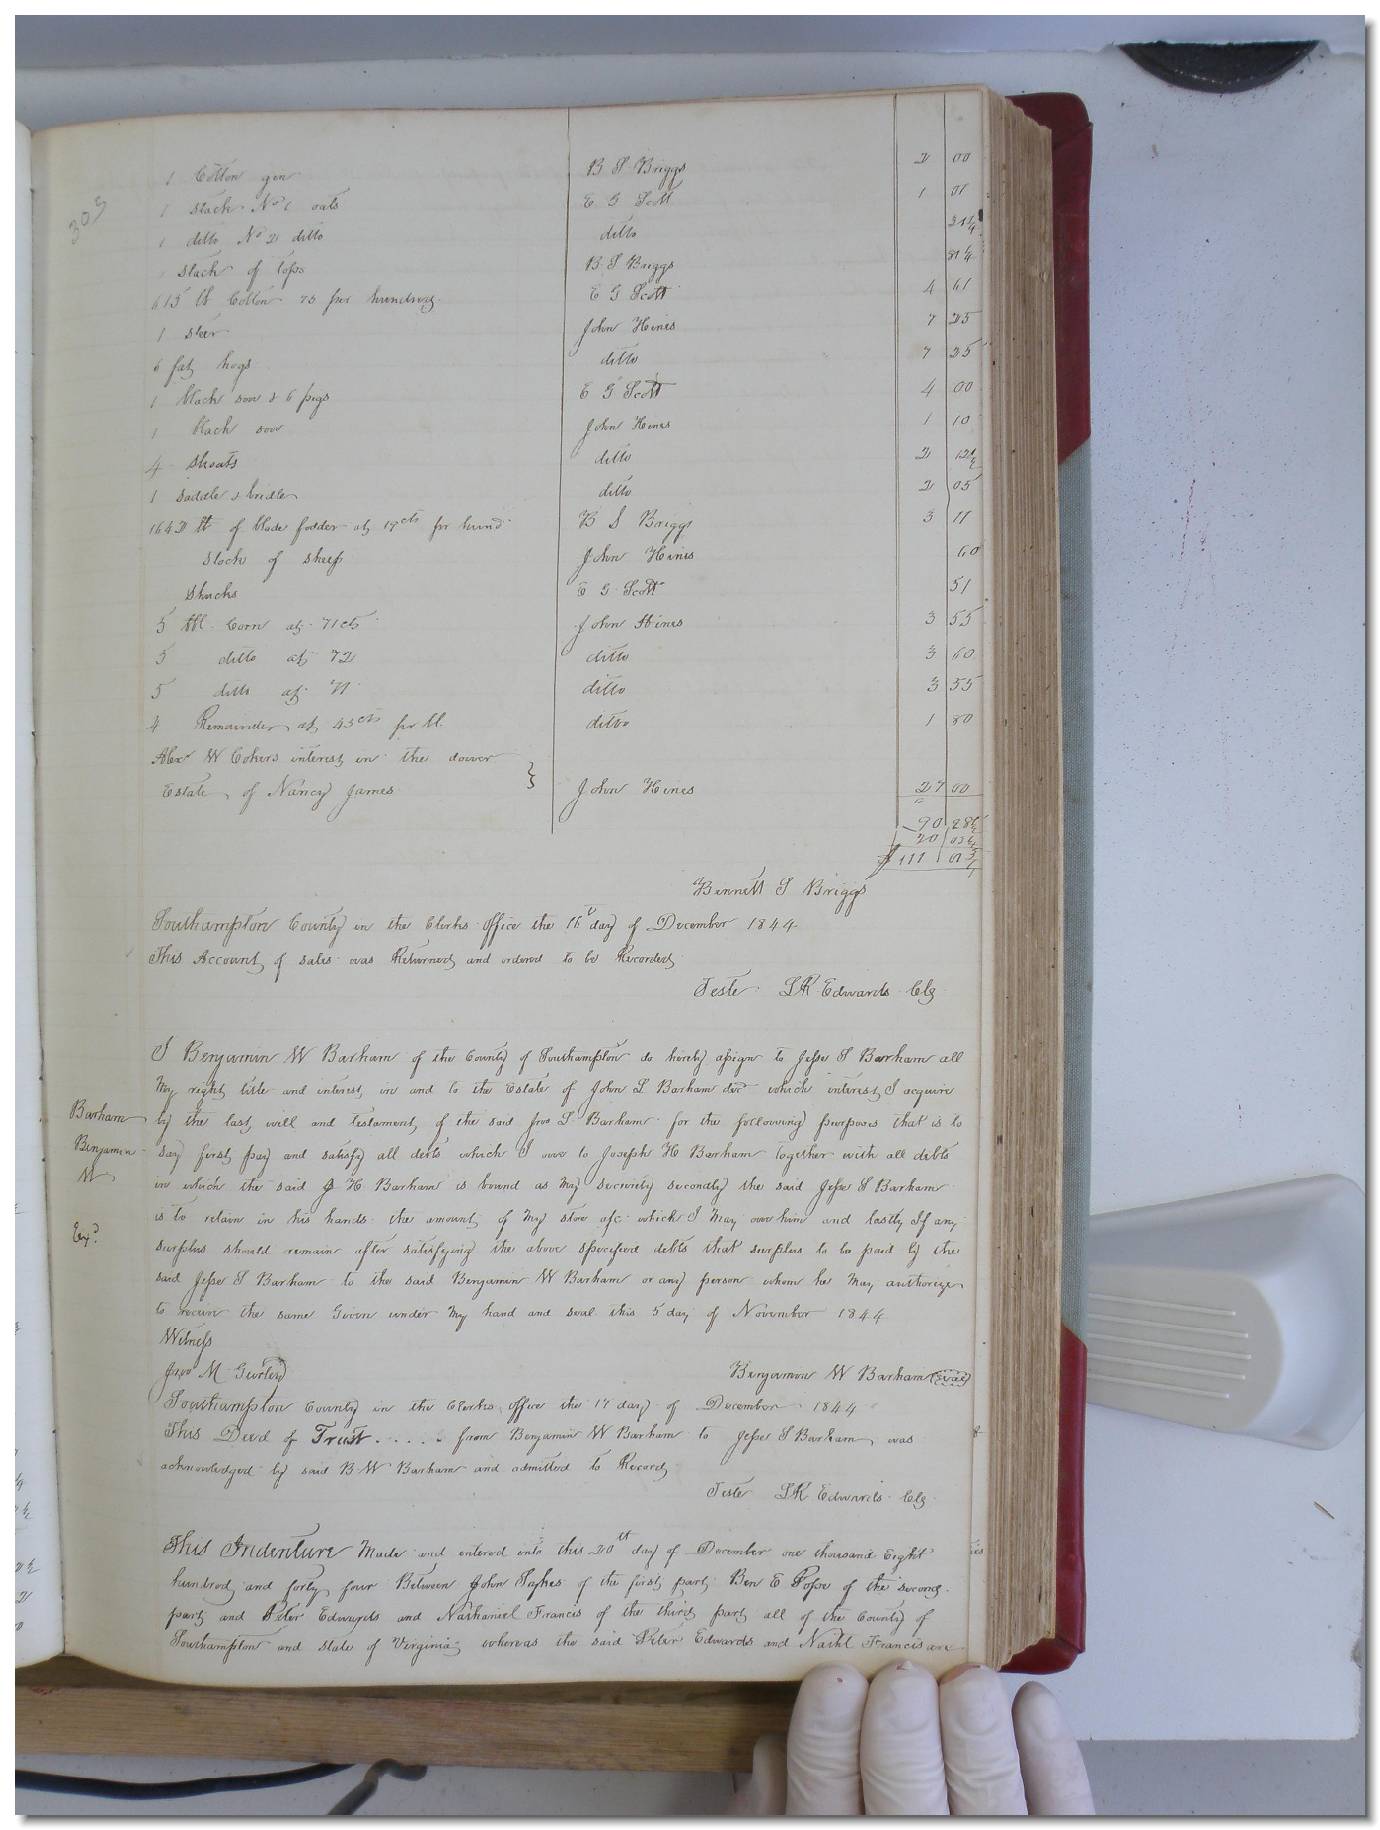 303
1 Cotton gin B S Briggs 2 00
1 stack No 1 oats E G Scott 1 01
1 ditto No 2 ditto ditto 21¼
1 stack of tops B S Briggs 81¼
615 lb Cotton 75 per hundred E G Scott 4 61
1 steer John Hines 7 25
6 fat hogs ditto 7 25
1 black sow & 6 pigs E G Scott 4 00
1 black sow John Hines 1 10
4 shoats ditto 2 12½
1 saddle & bridle ditto 2 05
1642 lb of blade fodder at 19cts pr hund B S Briggs 3 11
Stock of sheep John Hines 60
Shucks E G Scott 51
5 bbl Corn at 71cts John Hines 3 55
5 ditto at 72 ditto 3 60
5 ditto at 71 ditto 3 55
4 Remainder at 45cts pr bl ditto 1 80
Alexr W Cokers interest in the dower
Estate of Nancy James } John Hines 27 00
90 28½
20
$111
Bennett S Briggs
Southampton County in the Clerks Office the day of December 1844
This Account of sales was Returned and ordered to be Recorded
Teste L R Edwards Clg
I Benjamin W Barham of the County of Southampton do hereby assign to Jesse S Barham all
My right title and interest in and to the Estate of John L Barham decd which interest I acquire
Barham by the last will and testament of the said Jno L Barham for the following purposes that is to
Benjamin say first pay and satisfy all debts which I owe to Joseph H Barham together with all debts
W in which the said J H Barham is bound as My security secondly the said Jesse S Barham
is to retain in his hands the amount of My store a/c which I May owe him and lastly If any
Exd surplus should remain after satisfying the above specified debts that surplus to be paid by the
said Jesse S Barham to the said Benjamin W Barham or any person whom he May authorize
to receive the same Given under My hand and seal this 5 day of November 1844
Witness
Jno M Gurley Benjamin W Barham (seal)
Southampton County in the Clerks Office the 17 day of December 1844
This Deed of Trust . . . . . from Benjamin W Barham to Jesse S Barham was
acknowledged by said B W Barham and admitted to Record
Teste L R Edwards Clg
This Indenture Made and entered into this 20th day of December one thousand Eight
hundred and forty four Between John Sykes of the first part Ben E Pope of the second
part and Peter Edwards and Nathaniel Francis of the third part all of the County of
Southampton and state of Virginia whereas the said Peter Edwards and Nathl Francis are